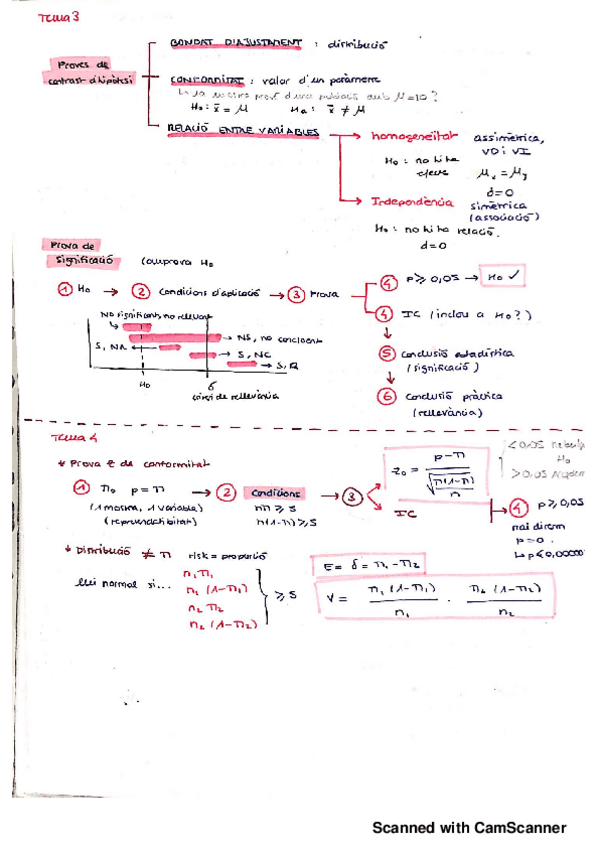 Tema 3
Proves de
contrast d'hipòtesi
BONDAT D'AJUSTAMENT : distribució
CONFORMITAT : valor d'un paràmetre
mostra prové d'una població amb μ=10 ?
H₀ : x̄ = μ   Hₐ : x̄ ≠ μ
RELACIÓ ENTRE VARIABLES
homogeneïtat   assimètrica,
VD i VI
H₀ : no hi ha
efecte   μₓ = μᵧ
δ=0
Independència   simètrica
(associació)
H₀ : no hi ha relació.
d=0
Prova de
significació   Comprova H₀
① H₀ → ② Condicions d'aplicació → ③ Prova
④ p ≥ 0,05 → H₀ ✓
④ IC (inclou a H₀?)
⑤ Conclusió estadística
(significació)
⑥ Conclusió pràctica
(rellevància)
No significant, no rellevant
NS, no concloent
S, NR
S, NC
S, R
H₀   δ
canvi de rellevància
Tema 4
* Prova Z de conformitat
① π₀ p = π → ② Condicions → ③
(1 mostra, 1 variable)   nπ ≥ 5
n(1-π) ≥ 5
z₀ = p-π / √(π(1-π)/n)
IC
<0,05 rebutja
H₀
>0,05
④ p ≥ 0,05
mai direm
p=0.
↳ p<0,00000
* Distribució ≠ π   risk = proporció
llei normal si...
n₁π₁
n₁ (1-π₁)
n₂π₂
n₂ (1-π₂)
≥ 5
E = δ = π₁ - π₂
V = π₁ (1-π₁) / n₁ · π₂ (1-π₂) / n₂
Scanned with CamScanner